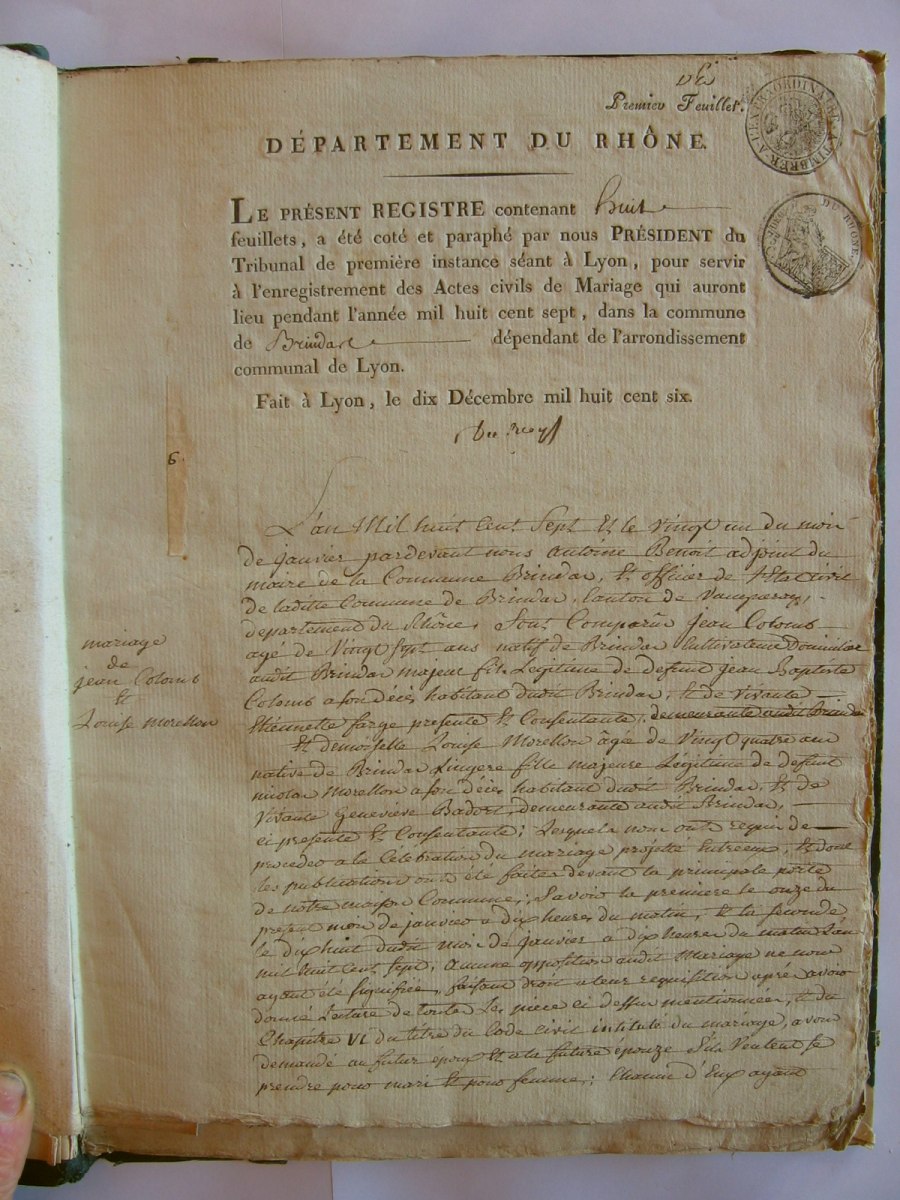 Premier Feuillet.
A L'EXTRAORDINAIRE A TIMBRER
DÉPARTEMENT DU RHÔNE.
DU RHONE.
LE PRÉSENT REGISTRE contenant huit
feuillets, a été coté et paraphé par nous PRÉSIDENT du
Tribunal de première instance séant à Lyon, pour servir
à l'enregistrement des Actes civils de Mariage qui auront
lieu pendant l'année mil huit cent sept, dans la commune
de Brindas dépendant de l'arrondissement
communal de Lyon.
Fait à Lyon, le dix Décembre mil huit cent six.
6
mariage
de
jean Colomb
Et
Louise Morellon
L'an Mil huit Cent Sept Et le Vingt un du mois
de janvier pardevant nous antoine Benoit adjoint du
maire de la Commune Brindas, Et officier de l'Etat civil
de laditte Commune de Brindas, Canton de Vaugneray,
departement du Rhône, Sont Comparûs jean Colomb
agé de Vingt Sept ans natif de Brindas Cultivateur Domicilié
audit Brindas majeur fils Legitime de defunt jean Baptiste
Colomb a son décès habitant dudit Brindas, Et de Vivante
Etiennette farge presente Et Consentante, demeurante audit Brindas
Et demoiselle Louise Morellon âgée de Vingt quatre ans
native de Brindas Lingere fille majeure Legitime de defunt
nicolas Morellon a son décès habitant dudit Brindas, Et de
Vivante Geneviève Badort, demeurante audit Brindas,
ci presente Et Consentante; Lesquels nous ont requis de
proceder a la Célébration du mariage projetté Entreeux, Et dont
les publications ont été faites devant la principale porte
de notre maison Commune; Savoir la premiere le onze du
present mois de janvier a dix heures du matin, Et la seconde
le dix huit dudit mois de janvier a dix heures du matin L'an
mil huit Cent Sept; Aucune opposition audit Mariage ne nous
ayant été signifiée, faisant droit a leur requisition après avoir
donné Lecture de toutes les pieces ci dessus mentionnées, Et du
Chapitre VI du titre du Code Civil intitulé du mariage, avons
demandé au futur epoux Et a la future épouze S'ils Veulent se
prendre pour mari Et pour femme; Chacun d'Eux ayant